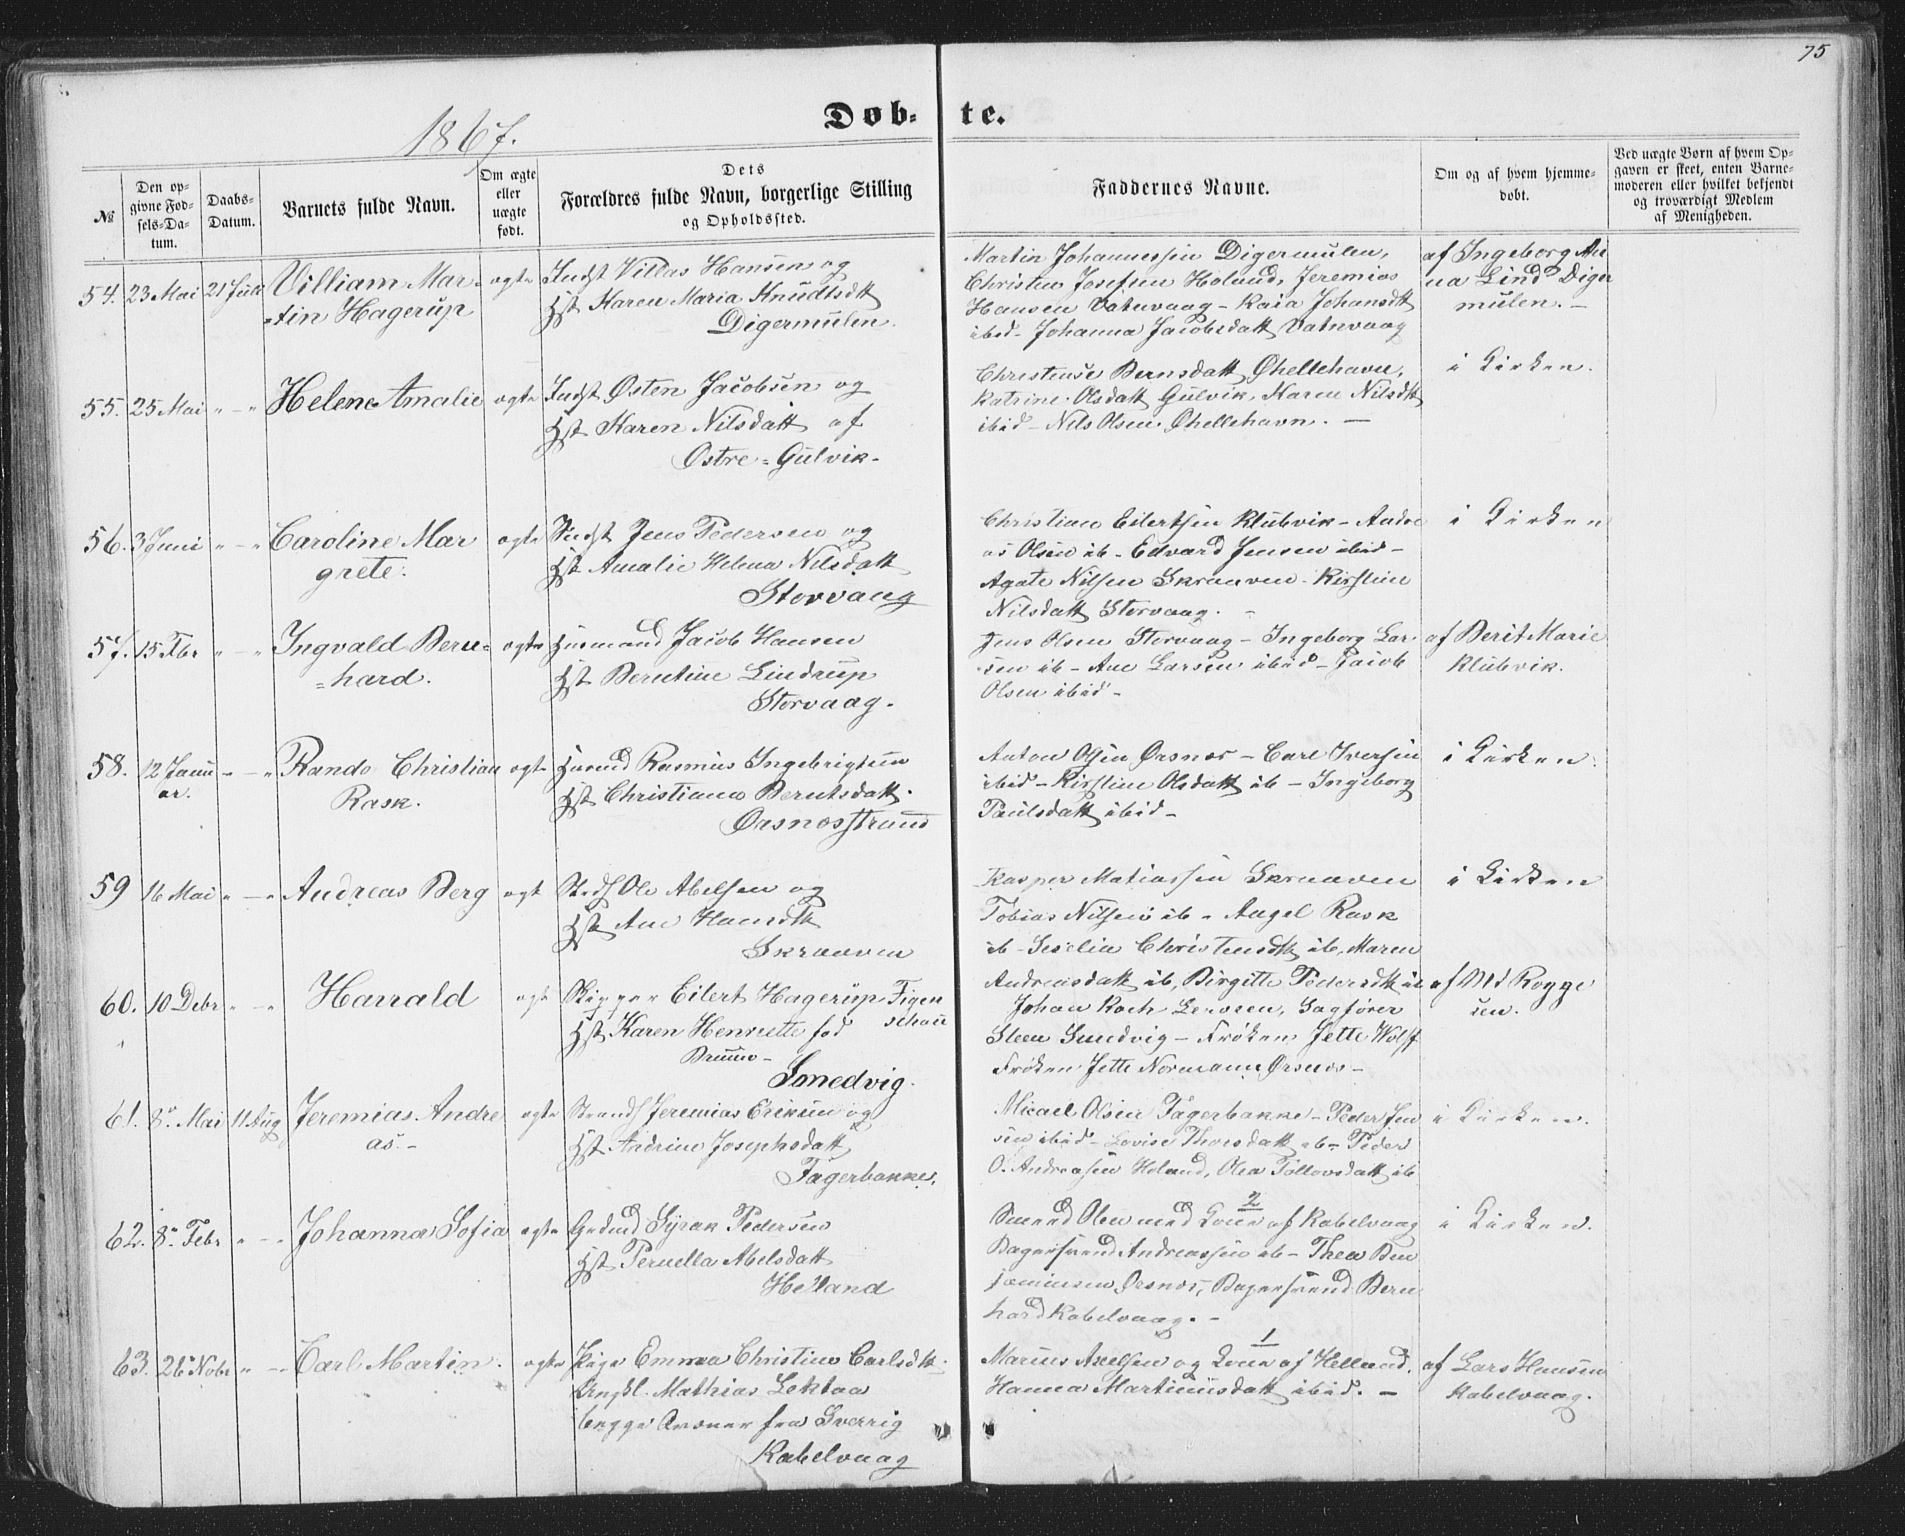 75
1867.
Døb- te.
№
Den op-
givne Fød-
sels-Da-
tum.
Daabs-
Datum.
Barnets fulde Navn.
Om ægte
eller
uægte
født.
Dets
Forældres fulde Navn, borgerlige Stilling
og Opholdssted.
Faddernes Navne.
Om og af hvem hjemme-
døbt.
Ved uægte Børn af hvem Op-
gaven er skeet, enten Barne-
moderen eller hvilket bekjendt
og troværdigt Medlem
af Menigheden.
54. 23 Mai 21 Juli Villiam Mar-
-tin Hagerup
ægte
Indst Villas Hansen og
Hst Karen Maria Knudtsdtt
Digermulen.
Martin Johannessen Digermulen,
Christen Josefsen Holand, Jeremias
Hansen Vatnvaag - Kaia Johansdtt
ibid - Johanna Jacobsdatt Vatnvaag
af Ingeborg An
na Lind Diger
mulen. -
55. 25 Mai " - " Helene Amalie ægte
Indst Østen Jacobsen og
Hst Karen Nilsdatt af
Østre=Gulvik-
Christense Bernsdatt Øhellehavn,
Katrine Olsdatt Gulvik, Karen Nilsdtt
ibid - Nils Olsen Øhellehavn. -
i Kirken.
56. 3 Juni " - " Caroline Mar
grete.
ægte
Indst Jens Pedersen og
Hst Amalie Helena Nilsdatt
Storvaag
Christian Eilertsen Klubvik - Andre
as Olsen ib - Edvard Jensen ibid -
Agate Nilsen Skraaven - Kirstine
Nilsdatt Storvaag. -
i Kirken
57. 15 Fbr " - " Ingvald Bern=
=hard.
ægte
Husmand Jacob Hansen
Hst Berntine Lindrup
Storvaag.
Jens Olsen Storvaag - Ingeborg Lar
sen ib - Ane Larsen ibid - Jacob
Olsen ibid -
af Berit Marie
Klubvik.
58. 12 Janu
ar.
" - " Rando Christian
Rask.
ægte
Husmd Rasmus Ingebrigtsen
Hst Christiana Berntsdatt.
Ørsnæsstrand
Anton Olsen Ørsnæs - Carl Iversen
ibid - Kirstine Olsdatt ib - Ingeborg
Paulsdatt ibid -
i Kirken.
59 16 Mai " - " Andreas Berg ægt
Strds Ole Abelsen og
Hst Ane Hansdtt
Skraaven
Kasper Matiassen Skraaven
Tobias Nilsen ib - Angel Rask
ib - Seselia Christensdtt ib, Maren
Andreasdatt ib, Birgitte Pedersdtt ib
i Kirken
60. 10 Debr " - " Harrald ægt
Skipper Eilert Hagerup Figen
schou
Hst Karen Henriette fød
Bruun -
Smedvig.
Johan Koch Lerosen, Sagfører
Steen Sundvig - Frøken Jette Wolff
Frøken Jette Normann Ørsnes -
af Md Rogge
sen.
61. 8de Mai 11 Aug Jeremias Andre
as. -
ægte
Strands Jeremias Eriksen og
Hst Andrine Josephsdatt
Fagerbakke.
Micael Olsen Fagerbakke - Peder Jen
sen ibid - Lovise Thorsdatt ib - Peder
O. Andreasen Holand, Olea Tollovsdatt ib
i Kirken.
62. 8de Febr " - " Johanna Sofia ægte
Grdmd Syran Pedersen
Hst Pernella Abelsdatt
Helland
2
Smed Olsen med Kone af Kabelvaag
Bagersvend Andreassen ib - Thea Ben
jaminsen Ørsnæs, Bagersvend Bern
hard Kabelvaag. -
i Kirken.
63. 26 Nobr " - " Carl Martin. ægte
Pige Emma Christine Carlsdtt.
Ungkl. Mathias Lektaa
begge Qvæner fra Sverrig
Kabelvaag
1
Marius Axelsen og Kone af Helland.
Hanna Martinusdatt ibid. -
af Lars Hansen
Kabelvaag.